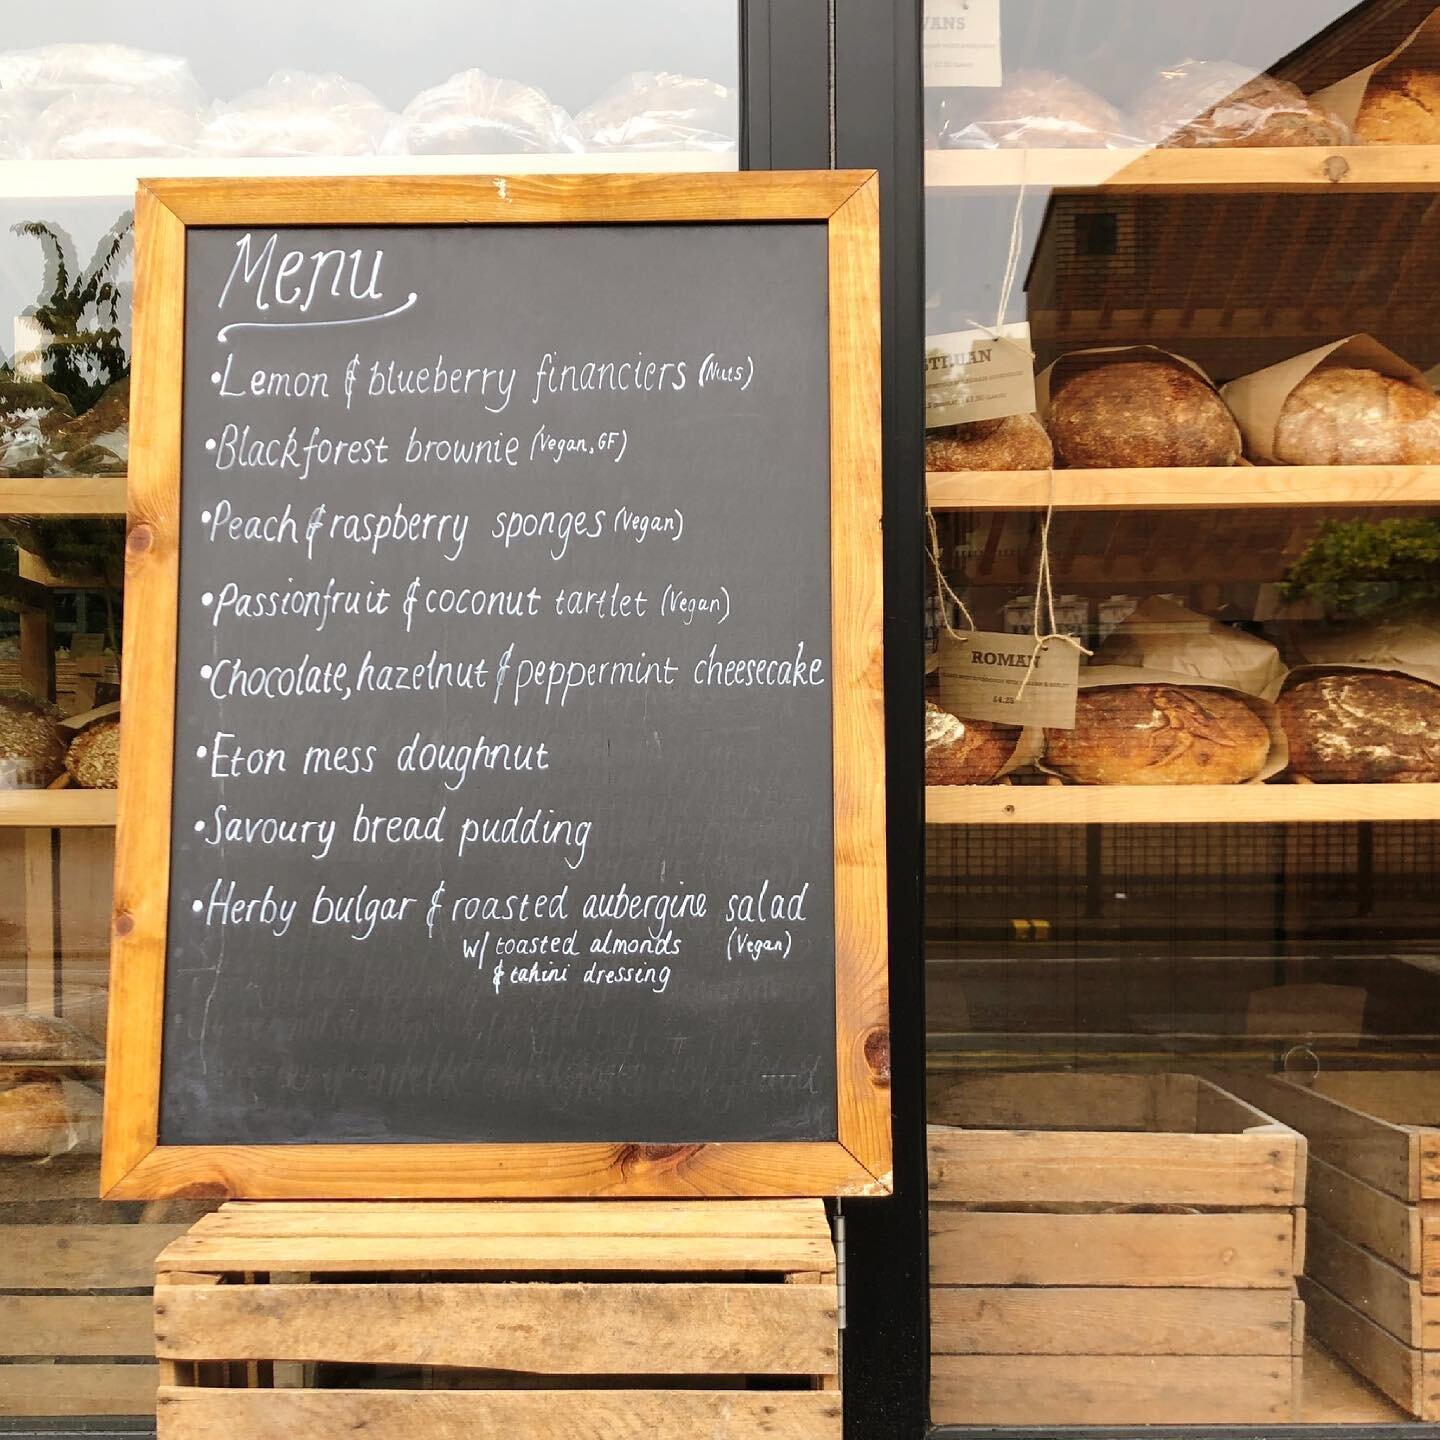 Menu
•Lemon & blueberry financiers (Nuts)
•Blackforest brownie (Vegan, GF)
•Peach & raspberry sponges (Vegan)
•Passionfruit & coconut tartlet (Vegan)
•Chocolate, hazelnut & peppermint cheesecake
•Eton mess doughnut
•Savoury bread pudding
•Herby bulgar & roasted aubergine salad
w/ toasted almonds (Vegan)
& tahini dressing
VANS
ROMAN
£4.25